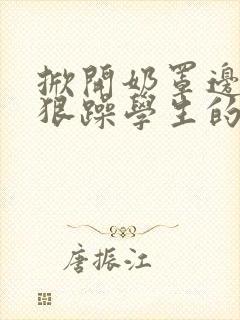 掀開奶罩邊
狠躁學生的
唐振江